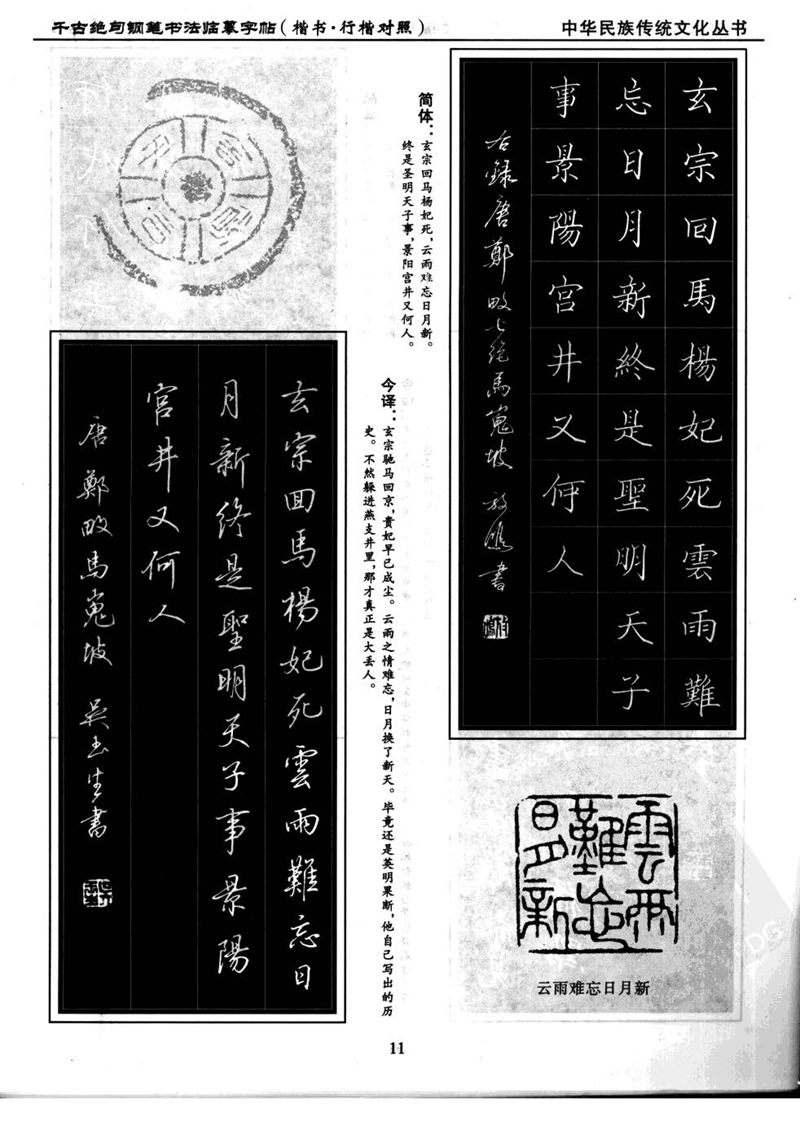 千古绝句钢笔书法临摹字帖（楷书·行楷对照）
中华民族传统文化丛书
玄宗回馬楊妃死雲雨難
忘日月新終是聖明天子
事景陽宮井又何人
右錄唐鄭畋七絕馬嵬坡 放鳴書
简体：玄宗回马杨妃死，云雨难忘日月新。
终是圣明天子事，景阳宫井又何人。
今译：玄宗驰马回京，贵妃早已成尘。云雨之情难忘，日月换了新天。毕竟还是英明果断，他自己写出的历
史。不然躲进燕支井里，那才真正是大丢人。
玄宗回馬楊妃死雲雨難忘日
月新終是聖明天子事景陽
宮井又何人
唐鄭畋馬嵬坡 吳玉生書
雲雨
難忘
日月新
云雨难忘日月新
11